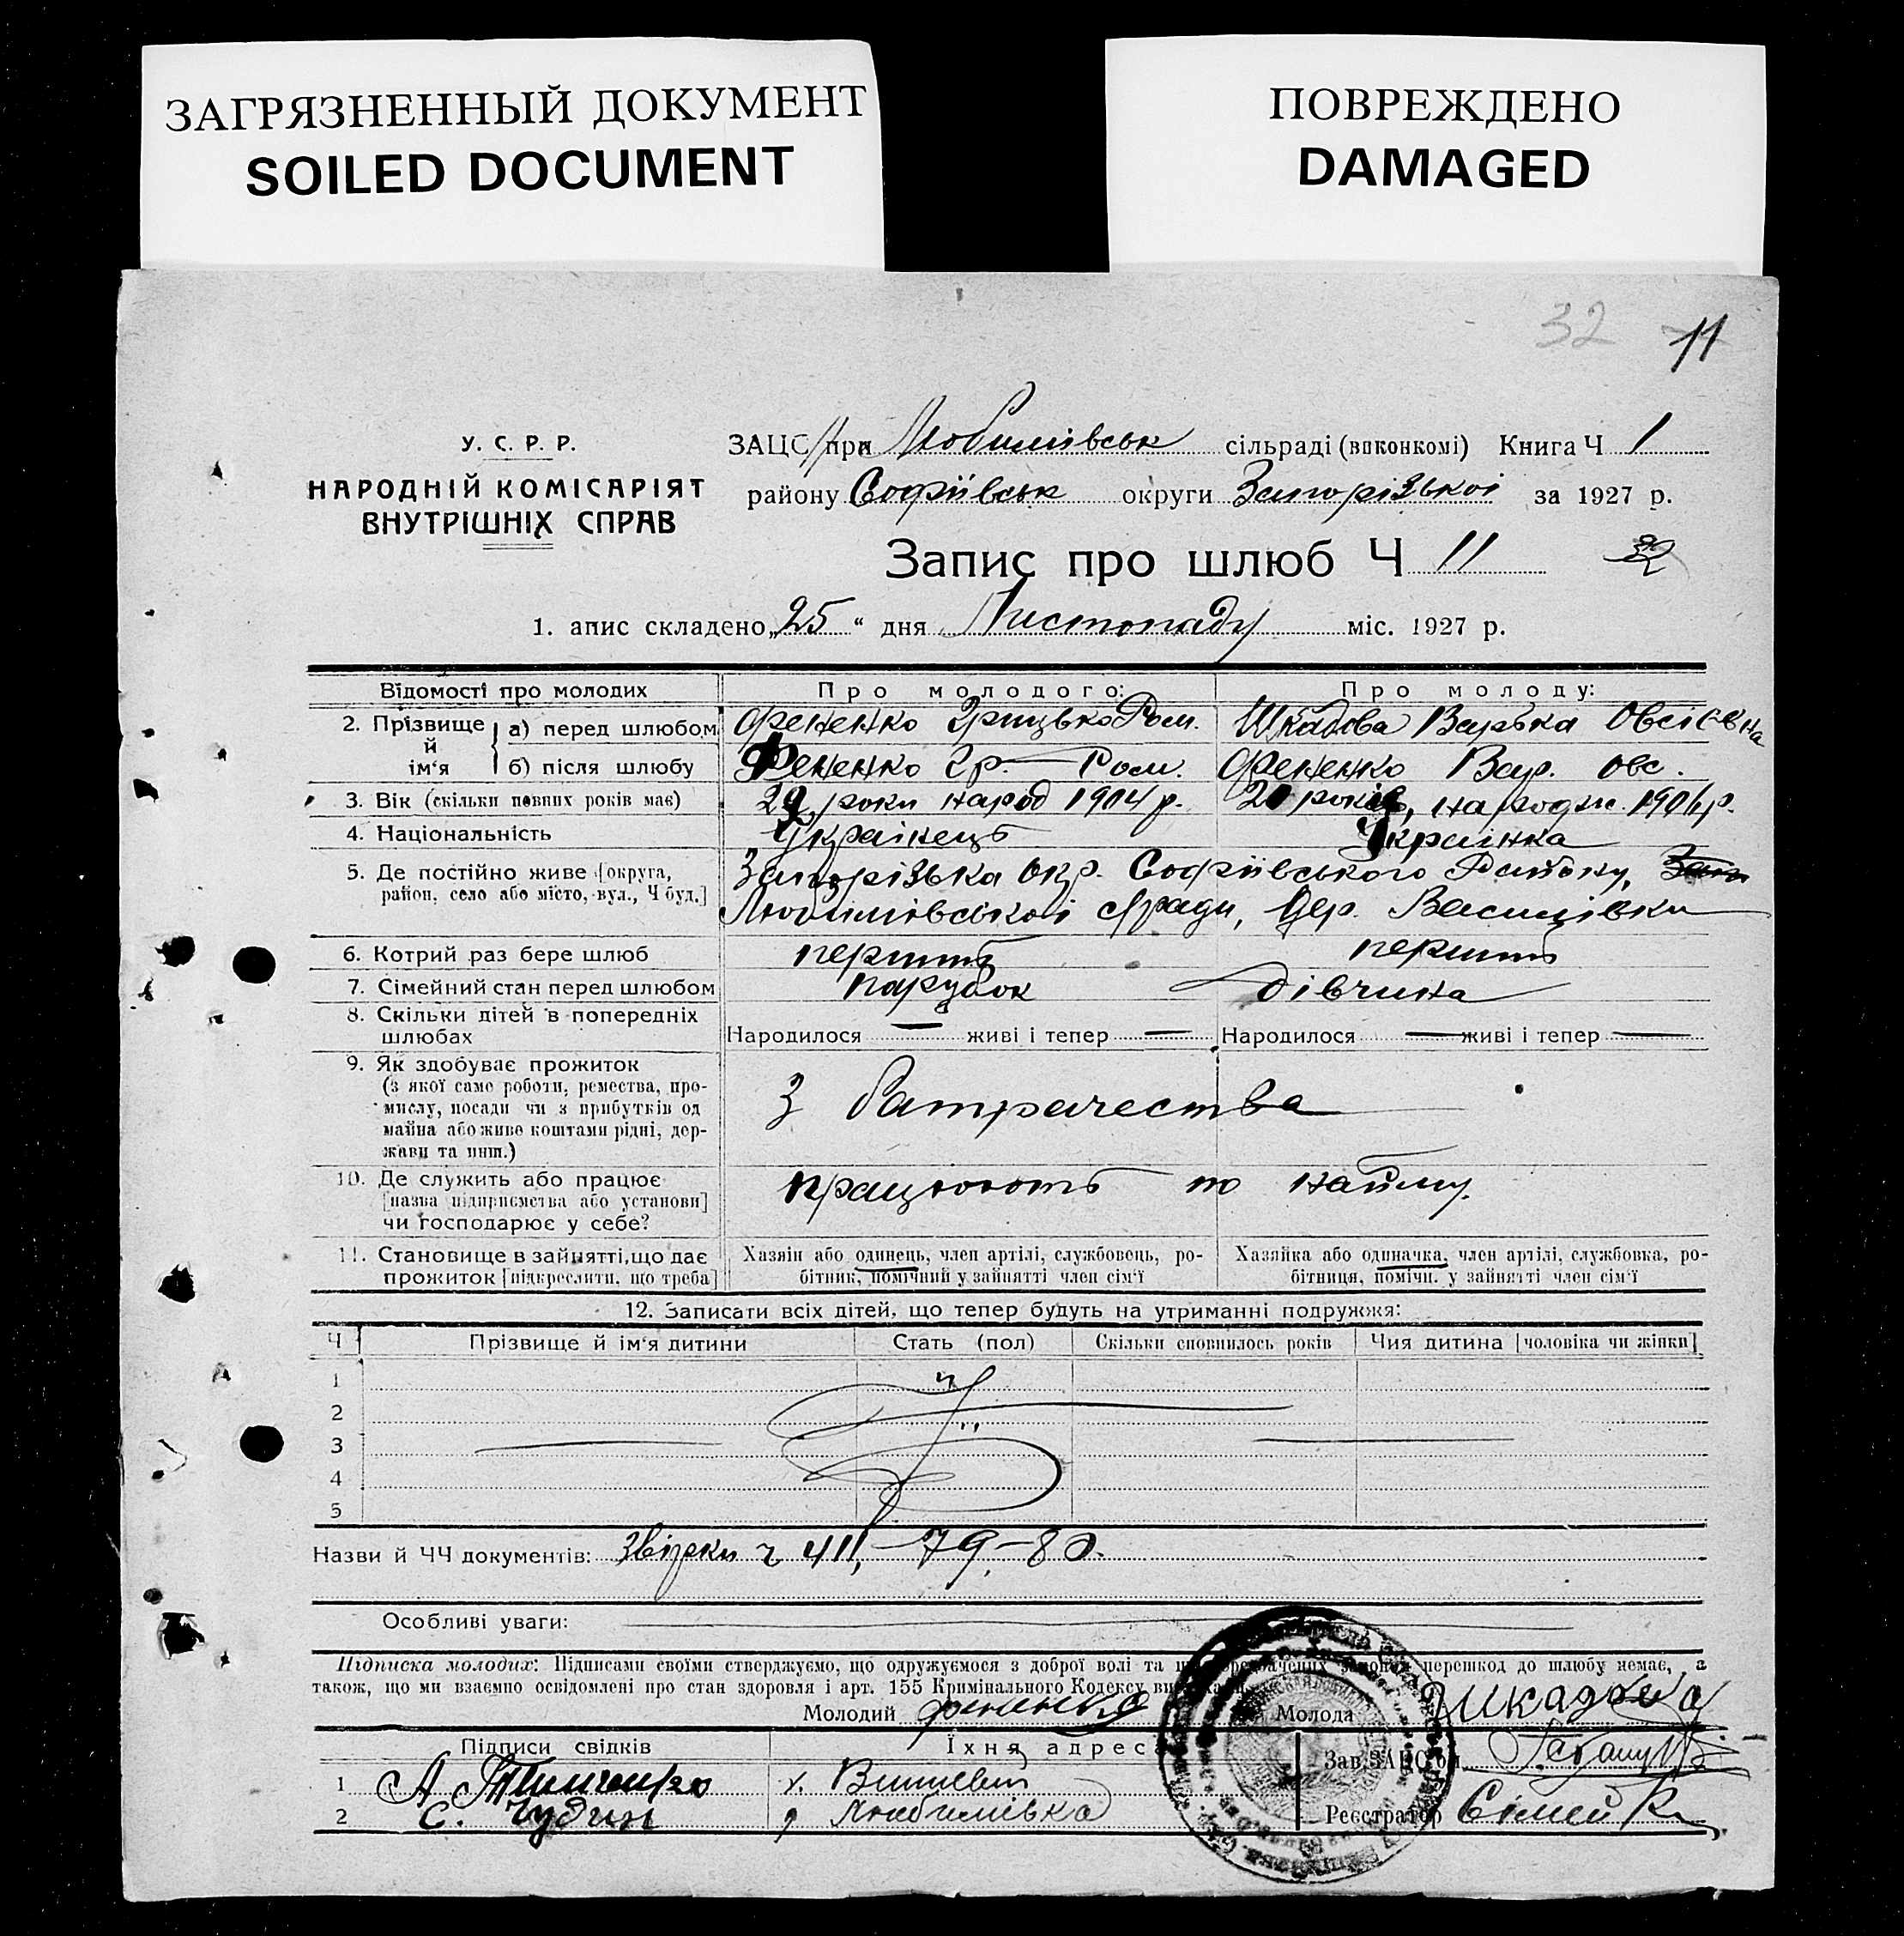 ЗАГРЯЗНЕННЫЙ ДОКУМЕНТ
SOILED DOCUMENT
ПОВРЕЖДЕНО
DAMAGED
32 11
У. С. Р. Р.
НАРОДНІЙ КОМІСАРІЯТ
ВНУТРІШНІХ СПРАВ
ЗАЦС при Любимівськ сільраді (виконкомі) Книга Ч 1
району Софіївськ округи Запорізької за 1927 р.
Запис про шлюб Ч 11 32
1. апис складено „25“ дня Листопаду міс. 1927 р.
Відомості про молодих Про молодого: Про молоду:
2. Прізвище й ім‘я а) перед шлюбом Фененко Грицько Ром. Шкадова Варька Овсіевна
б) після шлюбу Фененко Гр. Ром. Фененко Вар. Овс.
3. Вік (скільки повних років має) роки народ 1904 р. років, народж.
4. Національність Українець Українка
5. Де постійно живе [округа, район, село або місто, вул., Ч буд.] Запорізька окр. Софіївського Району,
Любимівської с/ради, дер. Василівки
6. Котрий раз бере шлюб перший перший
7. Сімейний стан перед шлюбом парубок дівчина
8. Скільки дітей в попередніх шлюбах Народилося — живі і тепер — Народилося — живі і тепер —
9. Як здобуває прожиток
(з якої само роботи, ремества, про-
мислу, посади чи з прибутків од
майна або живе коштами рідні, дер-
жави та инш.)
З батрачества
10. Де служить або працює
[назва підприємства або установи]
чи господарює у себе?
працюють по найму.
11. Становище в зайнятті, що дає
прожиток [підкреслити, що треба]
Хазяїн або одинець, член артілі, службовець, ро-
бітник, помічний у зайнятті член сім‘ї
Хазяйка або одиначка, член артілі, службовка, ро-
бітниця, помічн. у зайнятті член сім‘ї
12. Записати всіх дітей, що тепер будуть на утриманні подружжя:
Ч Прізвище й ім‘я дитини Стать (пол) Скільки сповнилось років Чия дитина [чоловіка чи жінки]
1
2
3
4
5
Назви й ЧЧ документів: Звірки ч 411, – 79, – 80.
Особливі уваги:
Підписка молодих: Підписами своїми стверджуємо, що одружуємося з доброї волі та перешкод до шлюбу немає, а
також, що ми взаємно освідомлені про стан здоровля і арт. 155 Кримінального Кодексу
Молодий Фененко Молода Шкадова
Підписи свідків Їхня адреса Зав. ЗАЦС‘ом
1 А.
2 С. Чудин Любимівка Реєстратор